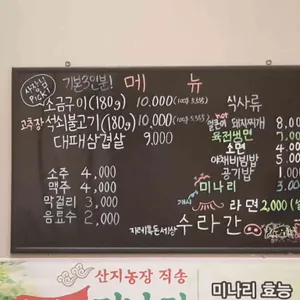 사장님 PICK!
기본3인분! 메뉴
소금구이(180g) 10,000
고추장석쇠불고기(180g) 10,000
대패삼겹살 9,000
소주 4,000
맥주 4,000
막걸리 3,000
음료수 2,000
식사류
hot
얼큰이 돼지찌개 8,0
육전냉면 7
소면 4
야채비빔밥 5
공기밥 1
미나리 3
라면 2,000
지례흑돈세상 수라간
산지농장 직송
미나리 효능